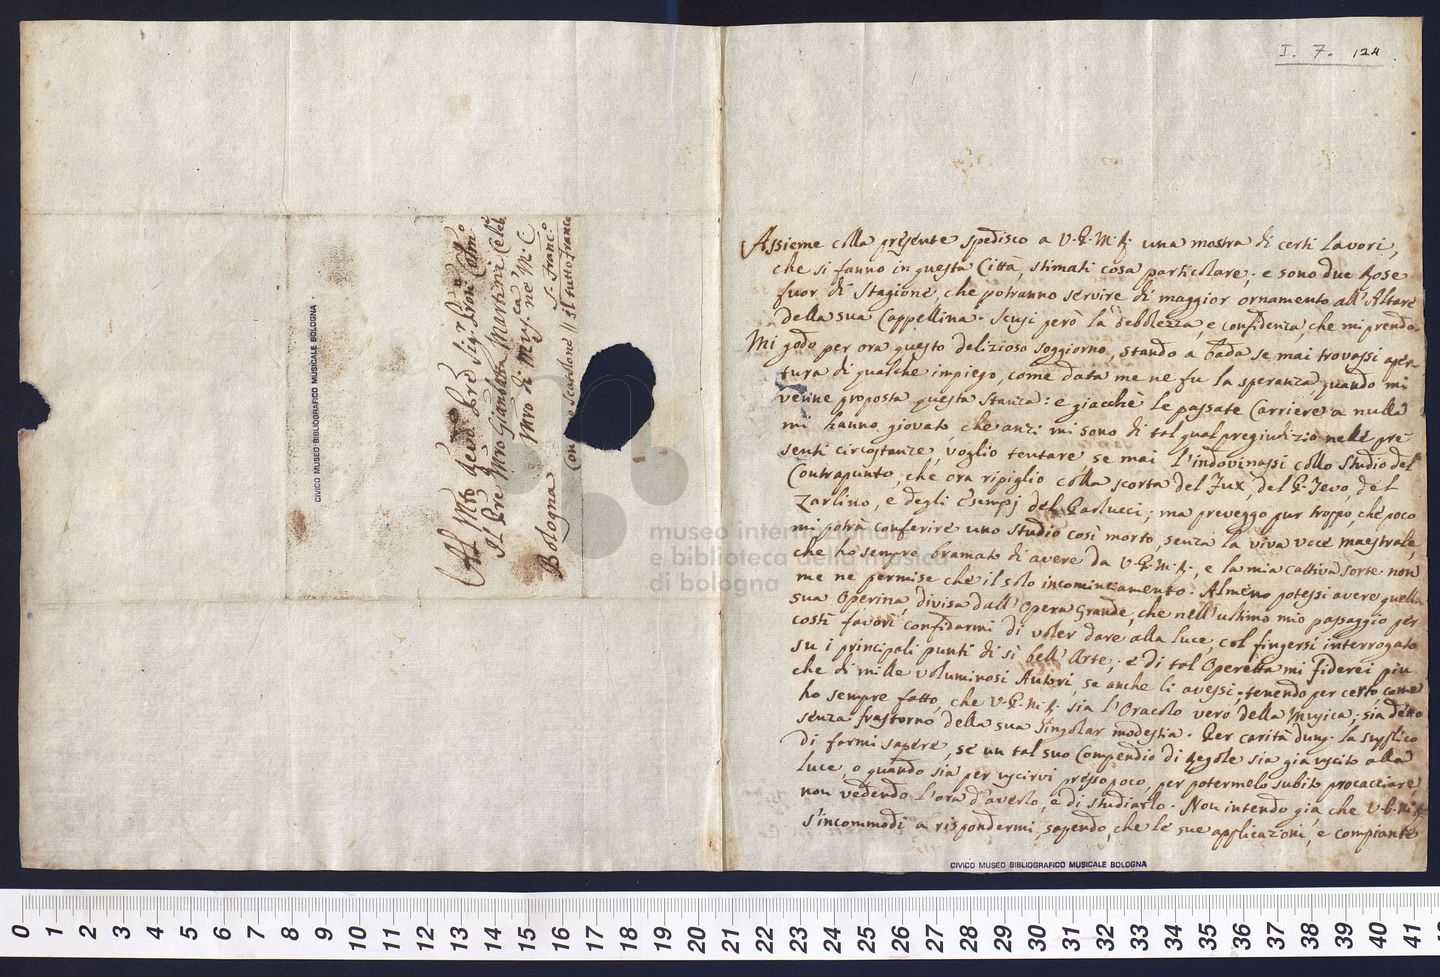 I. 7. 124
Al Mto Revdo Pre Sigr Pron Colmo
Il Pre Mro Giambatta Martini Celebe
Mro di Musca ne' M. C.
S. Franco
Bologna
Con uno Scartone // il tutto franco
CIVICO MUSEO BIBLIOGRAFICO MUSICALE BOLOGNA
Assieme colla presente spedisco a V. P. M. R. una mostra di certi lavori,
che si fanno in questa Città, stimati cosa particolare; e sono due Rose
fuor di Stagione, che potranno servire di maggior ornamento all'Altare
della sua Cappellina. Scusi però la debolezza, e confidenza, che mi prendo.
Mi godo per ora questo delizioso soggiorno, stando a bada se mai trovassi aper-
tura di qualche impiego, come data me ne fu la speranza, quando mi
venne proposta questa Stanza: e giacchè le passate Carriere a nulla
mi hanno giovato, che anzi mi sono di tal qual pregiudizio nelle pre-
senti circostanze, voglio tentare, se mai l'indovinassi collo Studio del
Contrapunto, che ora ripiglio colla scorta del Fux, del P. Tevo, del
Zarlino, e degli Esempj del Parlucci; ma preveggo pur troppo, che poco
mi potrà conferire uno studio così morto, senza la viva voce maestrale,
che ho sempre bramato di avere da V. P. M. R., e la mia cattiva sorte non
me ne permise che il solo incominciamento. Almeno potessi avere quella
sua Operina, divisa dall'Opera Grande, che nell'ultimo mio passaggio per
costì favorì confidarmi di voler dare alla luce, col fingersi interrogato
su i principali punti di sì bell'Arte; e di tal Operetta mi fiderei piu
che di mille voluminosi Autori, se anche li avessi; tenendo per certo, come
ho sempre fatto, che V. P. M. R. sia l'Oracolo vero della Musica; sia detto
senza frastorno della sua singolar modestia. Per carità dunq. la supplico
di farmi sapere, se un tal suo Compendio di Regole sia già uscito alla
luce, o quando sia per uscirvi presso poco, per potermelo subito procacciare,
non vedendo l'ora d'averlo, e di studiarlo. Non intendo già, che V. P. M. R.
s'incommodi a rispondermi, sapendo, che le sue applicazioni, e compiante
CIVICO MUSEO BIBLIOGRAFICO MUSICALE BOLOGNA
museo internazionale
e biblioteca della musica
di bologna
0 1 2 3 4 5 6 7 8 9 10 11 12 13 14 15 16 17 18 19 20 21 22 23 24 25 26 27 28 29 30 31 32 33 34 35 36 37 38 39 40 41